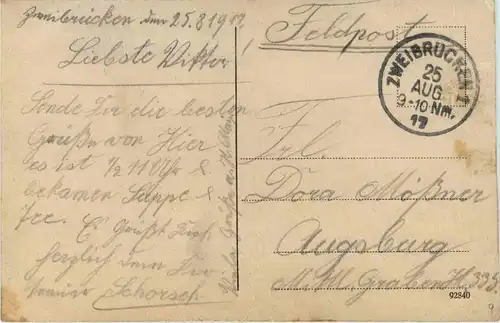 Zweibrücken den 25.8.1917.
Liebste Viktor!
Sende Dir die besten
Grüße von Hier
es ist 1/2 11 Uhr &
bekamen Suppe &
Tee. Es Grüßt Dich
herzlich dein
Schorsch
Feldpost
ZWEIBRÜCKEN 1
25
AUG
9-10 Nm.
17
Frl.
Dora Mößner
Augsburg
Mittl. Graben H. 335
92840